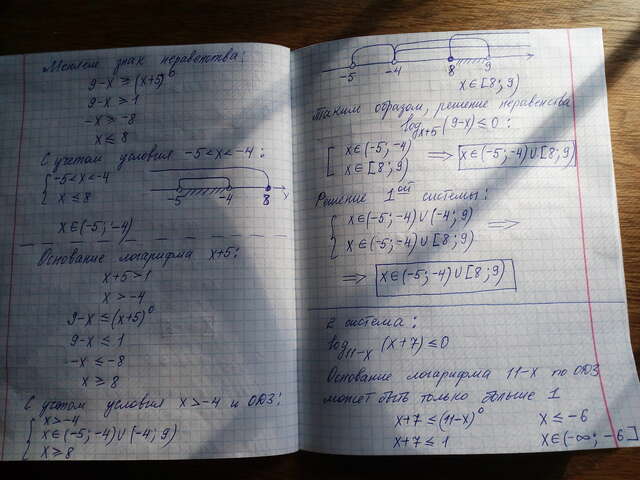 Меняем знак неравенства:
9-x ≥ (x+5)⁰
9-x ≥ 1
-x ≥ -8
x ≤ 8
С учетом условия -5<x<-4:
{ -5<x<-4
x ≤ 8
-5 -4 8 x
x∈(-5;-4)
Основание логарифма x+5:
x+5>1
x>-4
9-x ≤ (x+5)⁰
9-x ≤ 1
-x ≤ -8
x ≥ 8
С учетом условия x>-4 и ОДЗ:
{ x>-4
x∈(-5;-4)∪(-4;9)
x ≥ 8
-5 -4 8 9
x∈[8;9)
Таким образом, решение неравенства
log_{x+5}(9-x) ≤ 0:
[ x∈(-5;-4)
x∈[8;9) ⟹ x∈(-5;-4)∪[8;9)
Решение 1ой системы:
{ x∈(-5;-4)∪(-4;9)
x∈(-5;-4)∪[8;9) ⟹
⟹ x∈(-5;-4)∪[8;9)
2 система:
log_{11-x}(x+7) ≤ 0
Основание логарифма 11-x по ОДЗ
может быть только больше 1
x+7 ≤ (11-x)⁰ x ≤ -6
x+7 ≤ 1 x∈(-∞; -6]